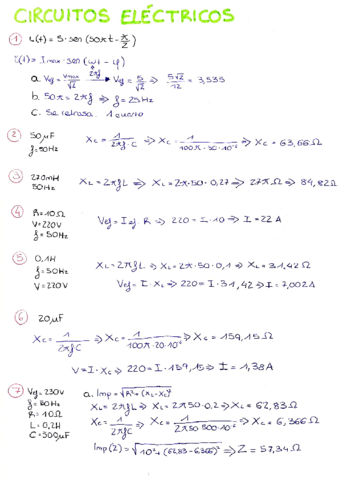 CIRCUITOS ELÉCTRICOS
① i(t) = 5·sen(50πt - π/2)
i(t) = Imax·sen(ωt - φ)
2πf
a. Vef = Vmax/√2 → Vef = 5/√2 ⇒ 5√2/12 = 3,535
b. 50π = 2πf ⇒ f = 25Hz
c. Se retrasa. 1 cuarto
② 50μF f=50Hz Xc = 1/2πf·C ⇒ Xc = 1/100π·50·10⁻⁶ ⇒ Xc = 63,66Ω
③ 270mH 50Hz XL = 2πfL ⇒ XL = 2π·50·0,27 ⇒ 27πΩ ⇒ 84,82Ω
④ R=10Ω V=220V f=50Hz Vef = Ief R ⇒ 220 = I·10 ⇒ I = 22A
⑤ 0,1H f=50Hz V=220V XL = 2πfL ⇒ XL = 2π·50·0,1 ⇒ XL = 31,42Ω
Vef = I·XL ⇒ 220 = I·31,42 ⇒ I = 7,002A
⑥ 20μF
Xc = 1/2πfC ⇒ Xc = 1/100π·20·10⁻⁶ ⇒ Xc = 159,15Ω
V = I·Xc ⇒ 220 = I·159,15 ⇒ I = 1,38A
⑦ Vef = 230V a. Imp = √R²+(XL-Xc)²
f = 50Hz XL = 2πfL ⇒ XL = 2π50·0,2 ⇒ XL = 62,83Ω
R = 10Ω
L = 0,2H Xc = 1/2πfC ⇒ Xc = 1/2π50·500·10⁻⁶ ⇒ Xc = 6,366Ω
C = 500μF
Imp(Z) = √10²+(62,83-6,366)² ⇒ Z = 57,34Ω